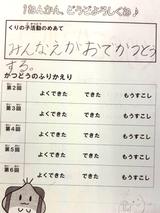 1ねんかん、どうぞよろしくね♪
くりの子活動のめあて
みんなえがおでかつどう
する。
かつどうのふりかえり
第2回 よくできた できた もうすこし
第3回 よくできた できた もうすこし
第4回 よくできた できた もうすこし
第5回 よくできた できた もうすこし
第6回 よくできた できた もうすこし